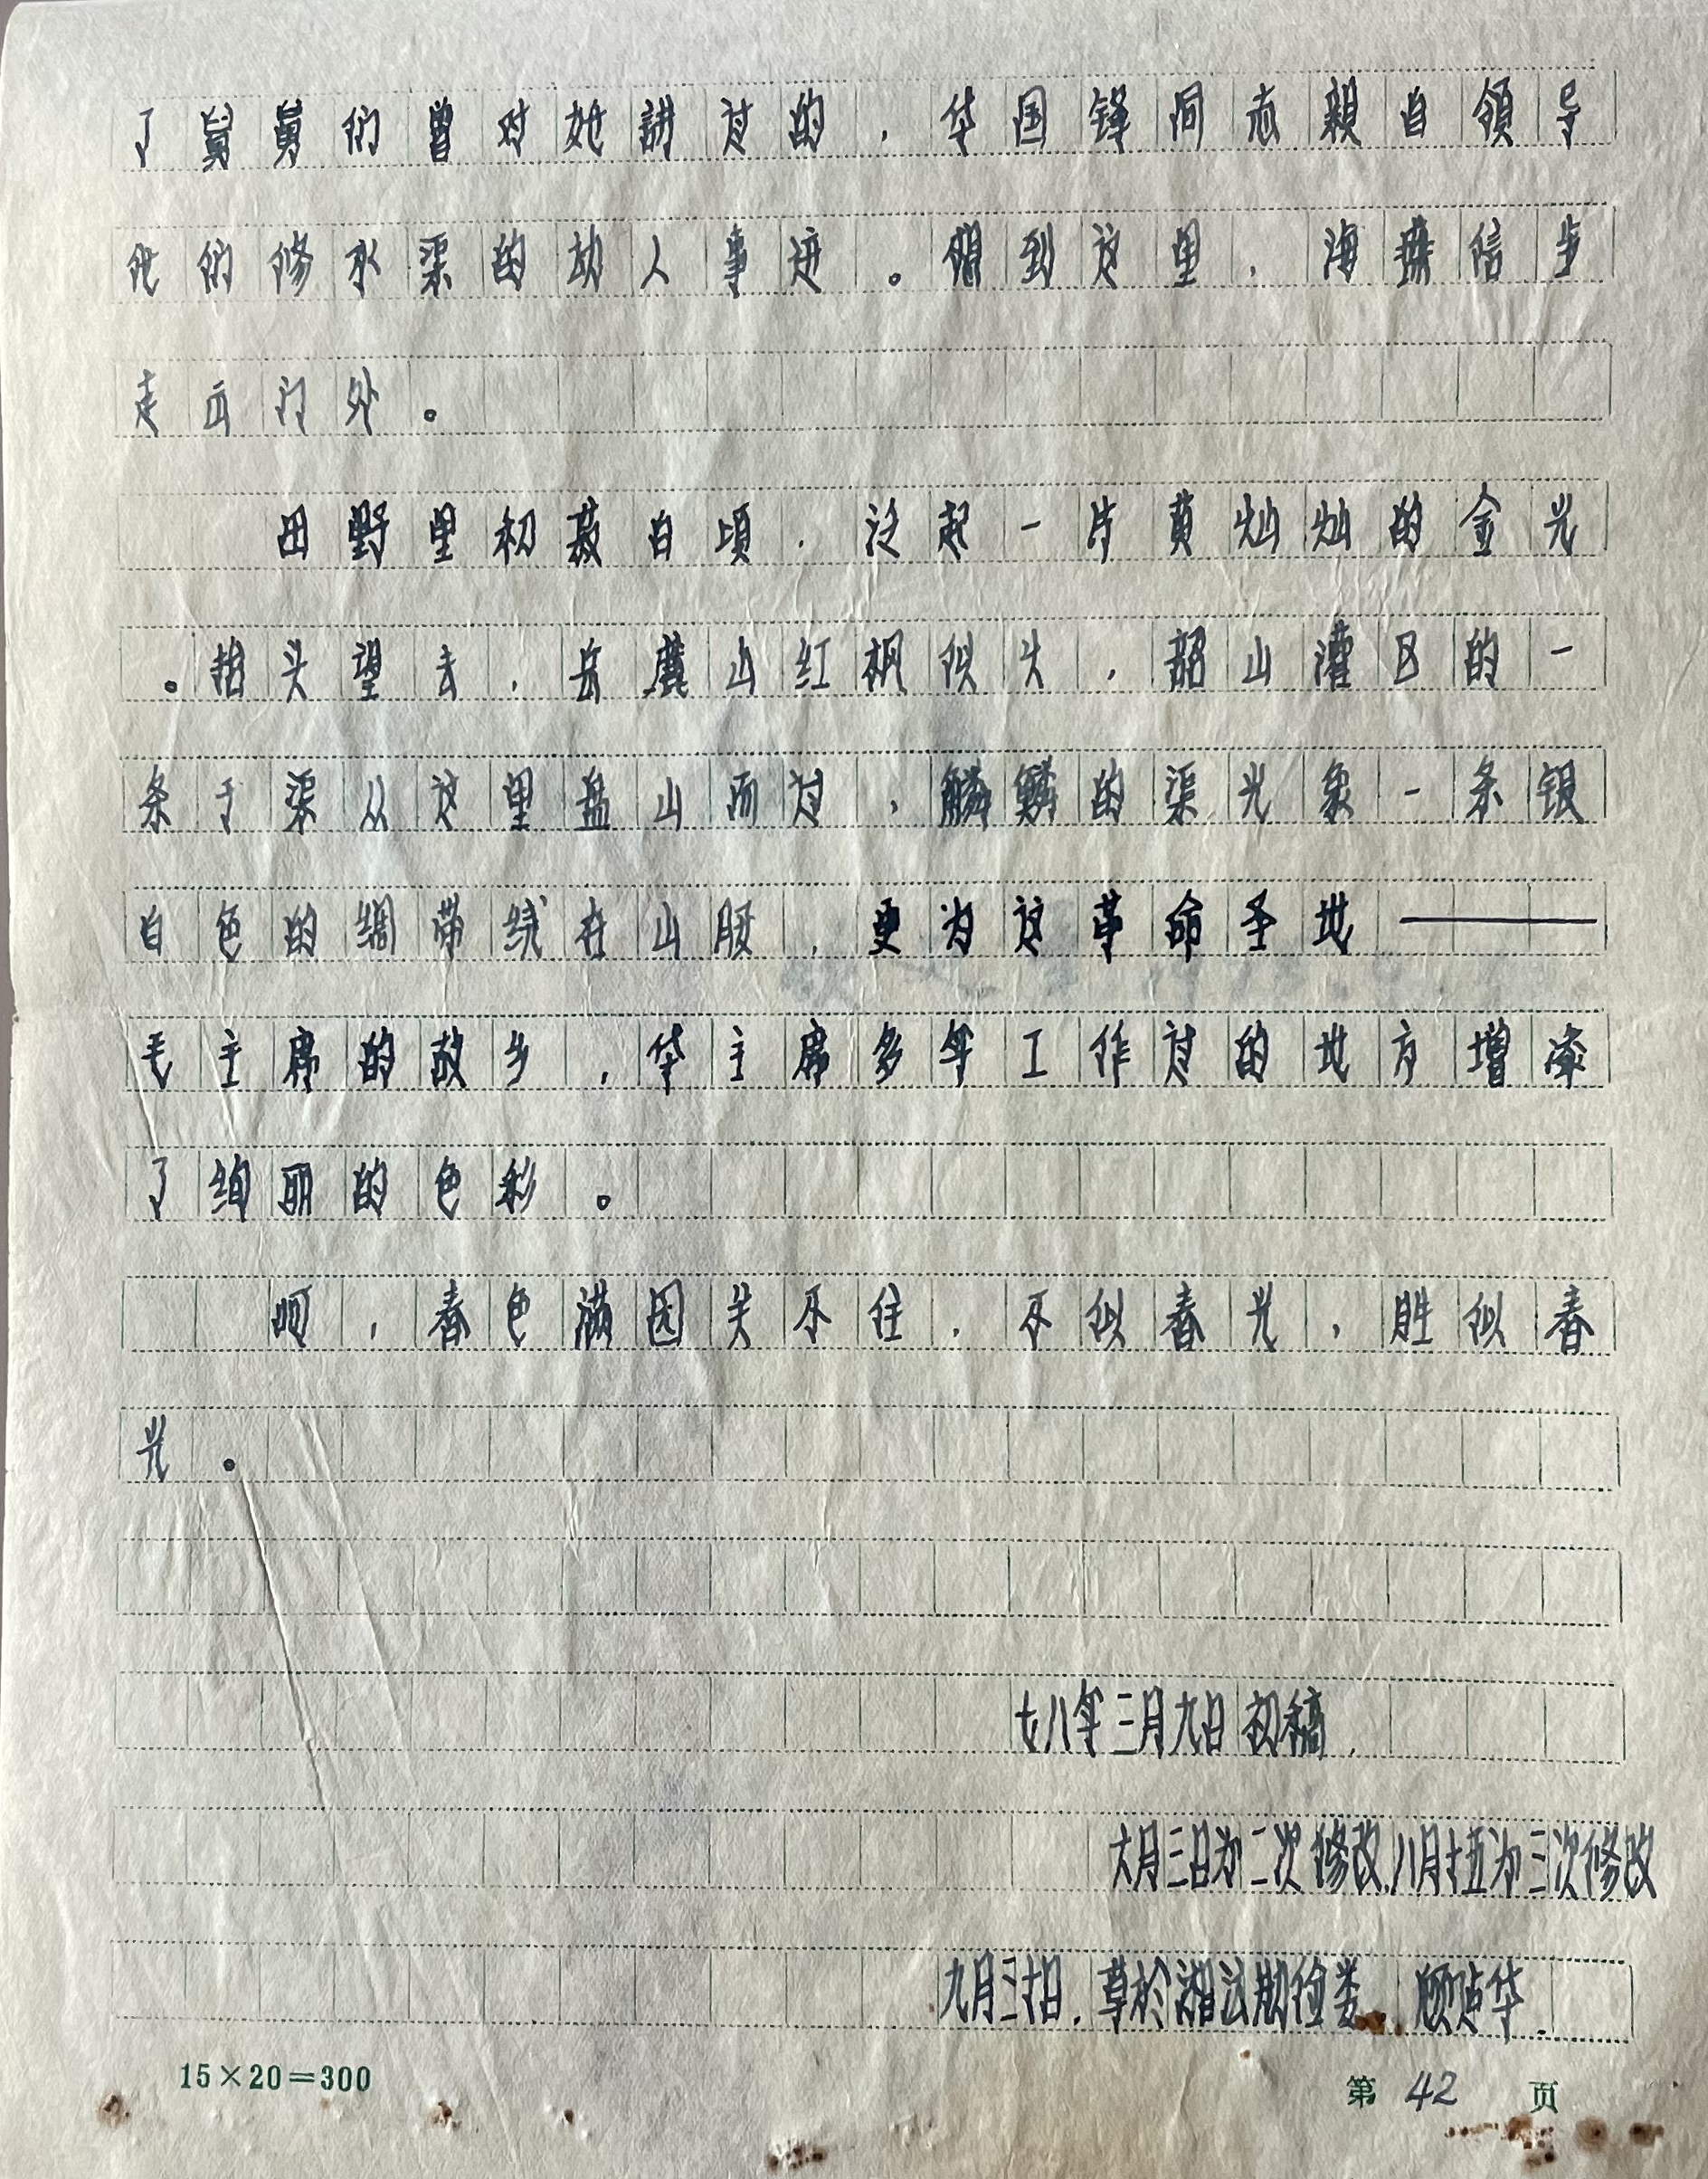 了舅舅们曾对她讲过的，华国锋同志親自領导
他们修水渠的动人事迹。想到这里，海燕信步
走出门外。
田野里初菽白頃，泛起一片黄灿灿的金光
。抬头望去，岳麓山红枫似火，韶山灌区的一
条干渠从这里盘山而过，鳞鳞的渠光象一条银
白色的绸带绕在山腰，更为这革命圣地———
毛主席的故乡，华主席多年工作过的地方增添
了绚丽的色彩。
呵，春色满园关不住，不似春光，胜似春
光。
七八年三月九日初稿，
六月三日为二次修改，八月十五为三次修改
九月三十日，草於湘
15×20=300
第42页